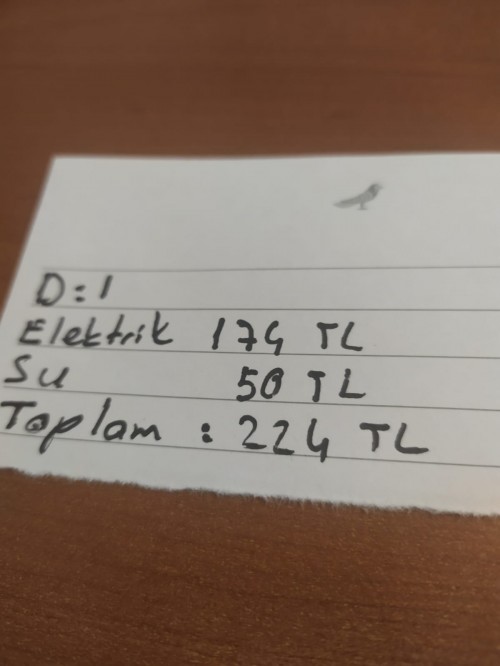 D:1
Elektrik 174 TL
Su 50 TL
Toplam : 224 TL